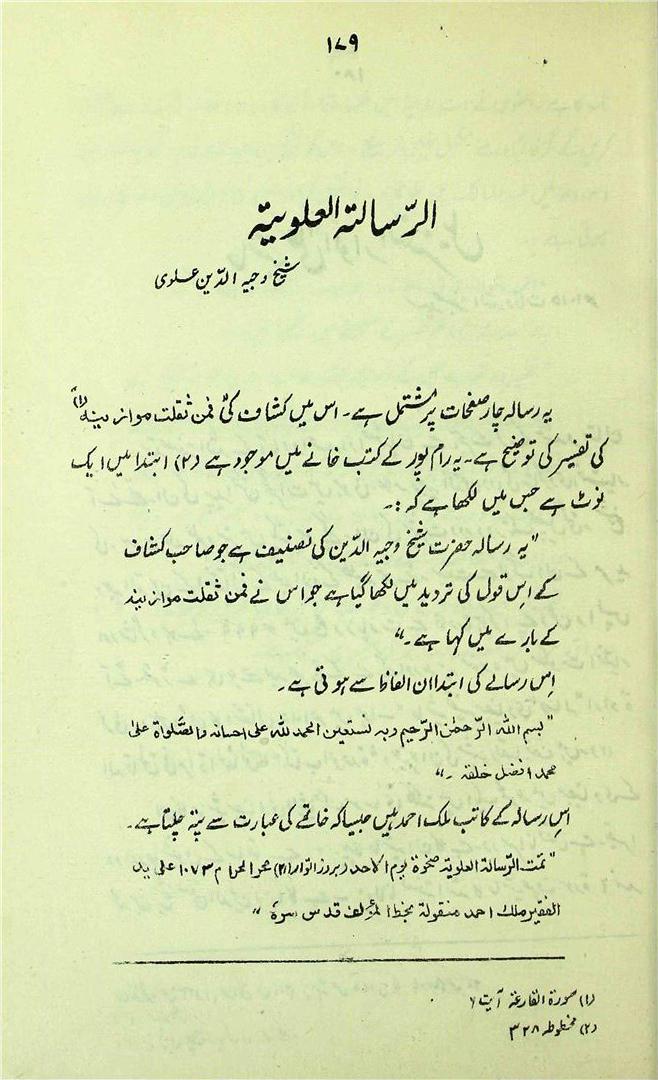 ۱۷۹
الرّسالتہ العلویۃ
شیخ وجیہ الدّین علوی
یہ رسالہ چار صفحات پر مشتمل ہے۔ اس میں کشاف کی فمن ثقلت موازینہ (۱)
کی تفسیر کی توضیح ہے۔ یہ رام پور کے کتب خانے میں موجود ہے (۲) ابتدا میں ایک
نوٹ ہے جس میں لکھا ہے کہ :۔
"یہ رسالہ حضرت شیخ وجیہ الدّین کی تصنیف ہے جو صاحب کشاف
کے اس قول کی تردید میں لکھا گیا ہے جو اس نے فمن ثقلت موازینہ
کے بارے میں کہا ہے۔"
اس رسالے کی ابتدا ان الفاظ سے ہوتی ہے۔
"بسم اللہ الرّحمٰن الرّحیم وبہ نستعین الحمد للہ علی احسانہ والصّلواة علیٰ
محمد افضل خلقہ ۔"
اس رسالہ کے کاتب ملک احمد ہیں جیسا کہ خاتمے کی عبارت سے پتہ چلتا ہے۔
"تمت الرّسالة العلویة ضحوة یوم الاحد (بروز اتوار) (۴) محرالحرام ۱۰۷۳ علی ید
الفقیر ملک احمد منقولة بخط المؤلف قدس سرہ"
(۱) سورة القارعة آیت ۶
(۲) مخطوطہ ۳۲۸